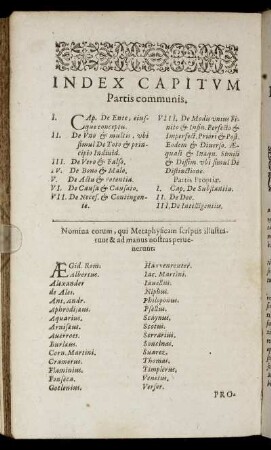 INDEX CAPITVM
Partis communis.
I. CAp. De Ente, eius-
que conceptu.
II. De Vno & multis, vbi
simul De Toto & prin-
cipio Indiuid.
III. De Vero & Falso,
IV. De Bono & Malo,
V. De Actu & potentia.
VI. De Causa & Causato,
VII. De Necess. & Contingen-
te.
VIII. De Modis vnius Fi-
nito & Infin. Perfecto &
Imperfect. Priori & Post.
Eodem & Diuerso. Æ-
quali & Inæqu. Simili
& Dissim. vbi simul De
Distinctione.
Partis Propriæ.
I. Cap. De Substantia.
II. De Deo.
III. De Intelligentiis.
Nomina eorum, qui Metaphysicam scriptis illustra-
runt & ad manus nostras perue-
nerunt:
ÆGid. Rom.
Albertus.
Alexander
de Ales.
Ant. Andr.
Aphrodisæus.
Aquarius,
Arnisæus.
Auerroes.
Burlæus.
Corn. Martini.
Cramerus.
Flaminius.
Fonseca.
Goclenius.
Hauuenreuter.
Iac. Martini.
Iauellus.
Niphus.
Philoponus.
Psellus.
Scaynus.
Scotus.
Serrarius.
Soncinas.
Suarez.
Thomas.
Timplerus.
Venetus.
Versor.
PRO-